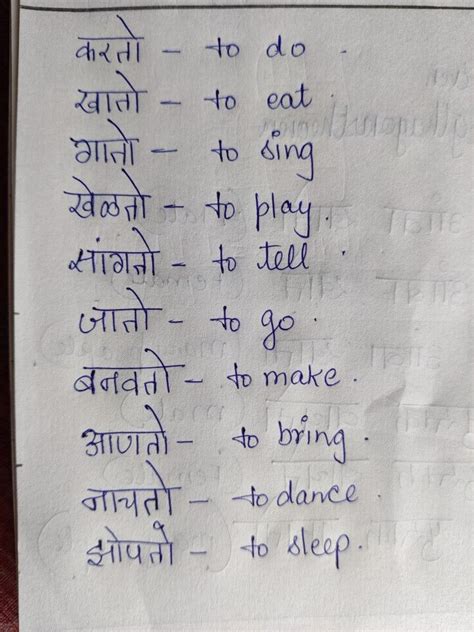 करतो - to do .
खातो - to eat .
गातो - to sing
खेळतो - to play .
सांगतो - to tell .
जातो - to go .
बनवतो - to make .
आणतो - to bring .
नाचतो - to dance .
झोपतो - to sleep .